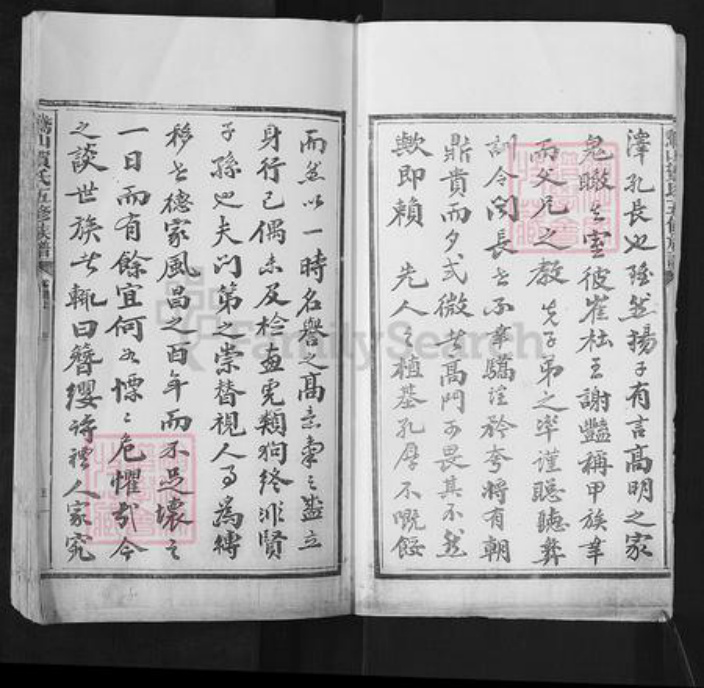 澤孔長也隨然揚子有言高明之家
鬼瞰其室彼崔杜王謝豔稱甲族率
而父兄之教先子弟之率謹聰聽彝
訓令聞長世不幸驕淫矜夸將有朝
鼎貴而夕式微者高門可畏其不然
歟即賴 先人之植基孔厚不嘅餒
而然以一時名譽之高意氣之盛立
身行己偶未及檢畫虎類狗終非賢
子孫也夫門第之崇替視人事為轉
移世德家風昌之百年而不足壞之
一日而有餘宜何如慄慄危懼哉今
之談世族者輒曰簪纓詩禮人家究
山賀氏五修族譜
FamilySearch